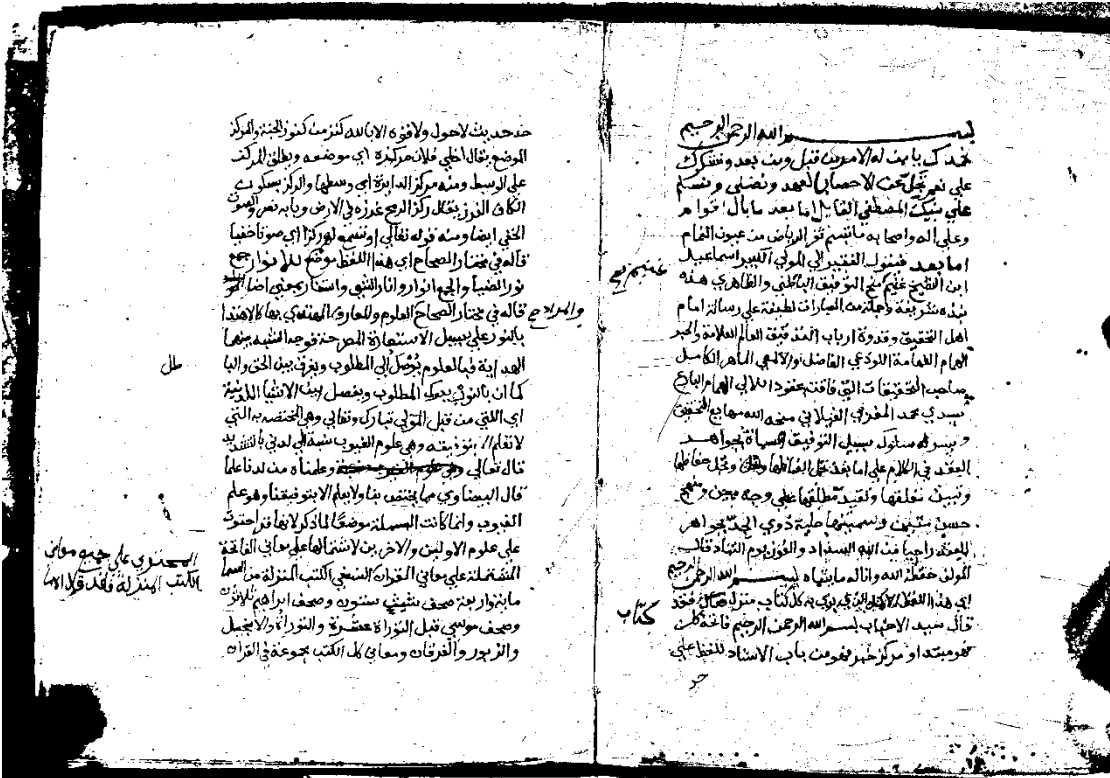 بسم الله الرحمن الرحيم
نحمدك يا من له الامر من قبل ومن بعد ونشكرك
على نعم تجل عن الاحصا والعد ونصلي ونسلم
على نبيك المصطفى القايل اما بعد ما بال اقوام
وعلى اله واصحابه ما تبسم ثغر الرياض من عيون الغمام
اما بعد فيقول الفقير الى المولى الكبير اسماعيل
ابن الشيخ غنيم منح التوفيق الباطني والظاهري هذه
نبذة شريفة وجملة من العبارات لطيفة على رسالة امام
اهل التحقيق وقدوة ارباب التدقيق العالم العلامة والحبر
الهمام الفهامة اللوذعي الفاضل والالمعي الماهر الكامل
صاحب التحقيقات التي فاقت عقود اللالي الهمام البارع
سيدي محمد المغربي الغيلاني منحه الله التحقيق
ويسر له سلوك سبيل التوفيق المسماة بجواهر
العقد في الكلام على اما بعد الفاظها
وتبين مغلقها وتقيد مطلقها على وجه ومنهج
حسن متين وسميتها حلية ذوي المجد بجواهر
العقد راجيا من الله السداد والفوز يوم التناد قال
المولف حفظه الله واناله ما يتمناه بسم الله الرحمن الرحيم
اي هذا اللفظ الذي به كل كتاب منزل فقد
قال سيد الاحباب بسم الله الرحمن الرحيم فاتحة كل
كتاب
فهو مبتدا او مركز خبر فهو من باب الاسناد للفظ على
حد
غنيم صح
حد حديث لا حول ولا قوة الا بالله كنز من كنوز الجنة والمركز
الموضع يقال اخلى فلان مركزه اي موضعه ويطلق المركز
على الوسط ومنه مركز الدايرة اي وسطها والركز بسكون
الكاف الغرز يقال ركز الرمح غرزه في الارض وبابه نصر والصوت
الخفي ايضا ومنه قوله تعالى او تسمع لهم ركزا اي صوتا خفيا
قاله في مختار الصحاح اي هذا اللفظ موضع للانوار جمع
نور الضيا والجمع انوار وانار الشي واستنار بمعنى اضا
قاله في مختار الصحاح العلوم والمعارف المهتدى بها كالاهتدا
والمراد صح
بالنور على سبيل الاستعارة المصرحة فوجه الشبه بينهما
الهداية فبالعلوم يوصل الى المطلوب ويفرق بين الحق والبا
طل
كما ان بالنور يدرك المطلوب ويفصل بين الاشيا اللدنية
اي اللتي من قبل المولى تبارك وتعالى وهي المختصة به التي
لا تعلم الا بتوفيقه وهي علوم الغيوب نسبة الى لدني بالتشديد
قال تعالى وعلمناه من لدنا علما
قال البيضاوي مما يختص بنا ولا يعلم الا بتوفيقنا وهو علم
الغيوب وانما كانت البسملة موضعا لما ذكر لانها قد احتوت
على علوم الاولين والاخرين لاشتمالها على معاني الفاتحة
المشتملة على معاني القران المحتوي على جميع معاني
الكتب المنزلة فقد الكتب المنزلة من السما
ماية واربعة صحف شيث ستون وصحف ابراهيم ثلاثون
وصحف موسى قبل التوراة عشرة والتوراة والانجيل
والزبور والفرقان ومعاني كل الكتب مجموعة في القران